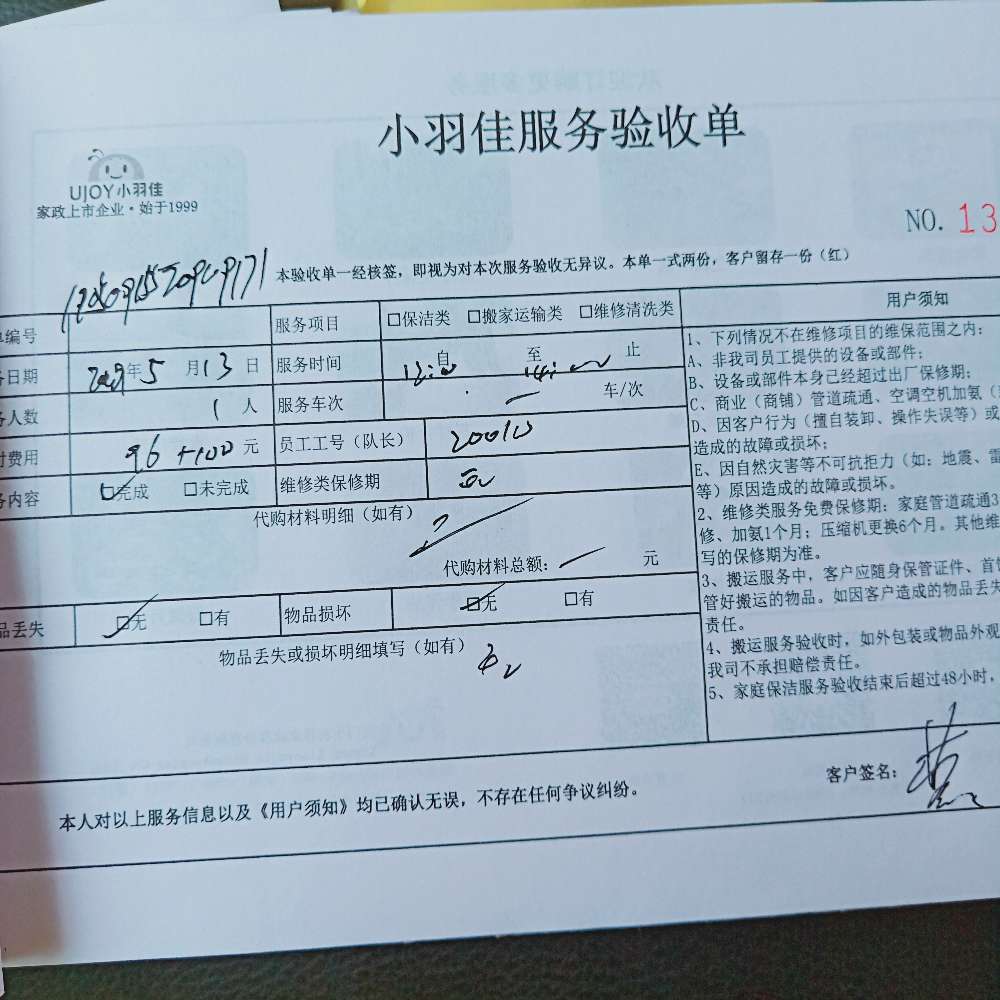 小羽佳服务验收单
UJOY小羽佳
家政上市企业·始于1999
NO. 13
本验收单一经核签，即视为对本次服务验收无异议。本单一式两份，客户留存一份（红）
编号 服务项目 □保洁类 □搬家运输类 □维修清洗类
日期 年 5 月 13 日 服务时间 自 至 止
人数 1 人 服务车次 车/次
费用 96 +100 元 员工工号（队长） 20010
内容 □完成 □未完成 维修类保修期 无
代购材料明细（如有）
代购材料总额： 元
品丢失 □无 □有 物品损坏 □无 □有
物品丢失或损坏明细填写（如有） 无
用户须知
1、下列情况不在维修项目的维保范围之内：
A、非我司员工提供的设备或部件；
B、设备或部件本身已经超过出厂保修期；
C、商业（商铺）管道疏通、空调空机加氨（
D、因客户行为（擅自装卸、操作失误等）或
造成的故障或损坏；
E、因自然灾害等不可抗拒力（如：地震、雷
等）原因造成的故障或损坏。
2、维修类服务免费保修期：家庭管道疏通3
修、加氨1个月；压缩机更换6个月。其他维
写的保修期为准。
3、搬运服务中，客户应随身保管证件、首饰
管好搬运的物品。如因客户造成的物品丢失
责任。
4、搬运服务验收时，如外包装或物品外观
我司不承担赔偿责任。
5、家庭保洁服务验收结束后超过48小时，
客户签名：
本人对以上服务信息以及《用户须知》均已确认无误，不存在任何争议纠纷。